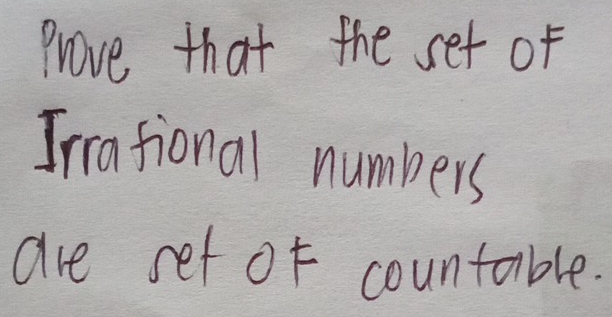 Prove that the set of
Irrational numbers
are set of countable.